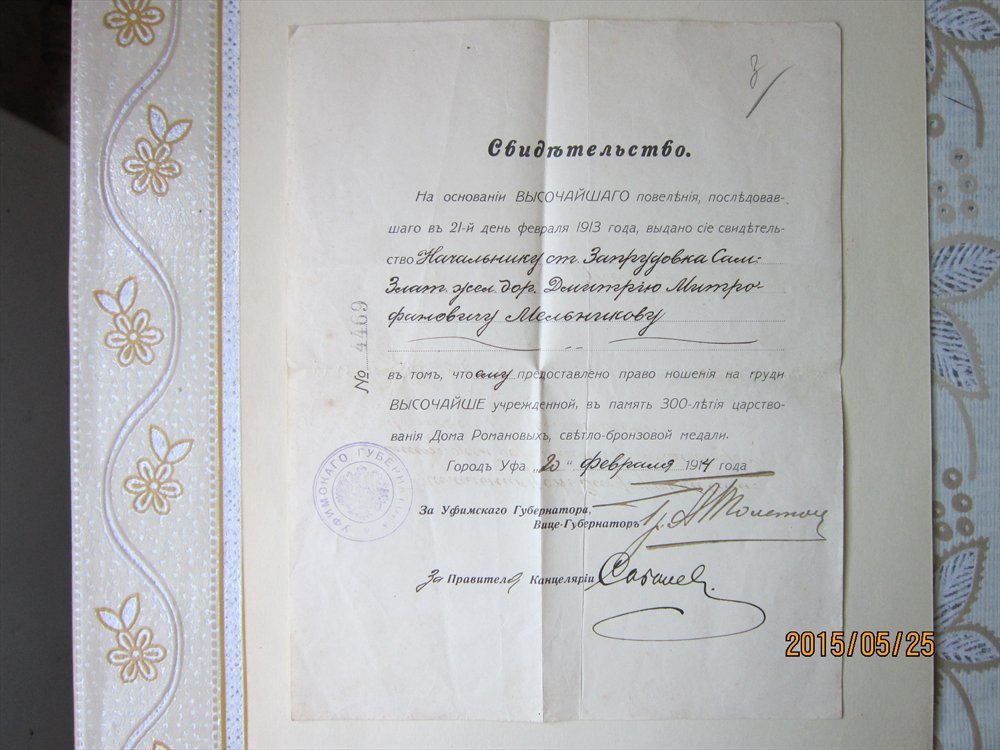 Свидѣтельство.
На основаніи ВЫСОЧАЙШАГО повелѣнія, послѣдовав-
шаго въ 21-й день февраля 1913 года, выдано сіе свидѣтель-
ство Начальнику ст. Запрудовка Сам:
Злат. жел. дор. Дмитрію Митро-
фановичу Мельникову
№ 4469
въ томъ, что ему предоставлено право ношенія на груди
ВЫСОЧАЙШЕ учрежденной, въ память 300-лѣтія царство-
ванія Дома Романовыхъ, свѣтло-бронзовой медали.
Городъ Уфа „20" февраля 1914 года
УФИМСКАГО ГУБЕРНАТОРА
За Уфимскаго Губернатора,
Вице-Губернаторъ гр. А Толстой
За Правителя Канцеляріи
2015/05/25